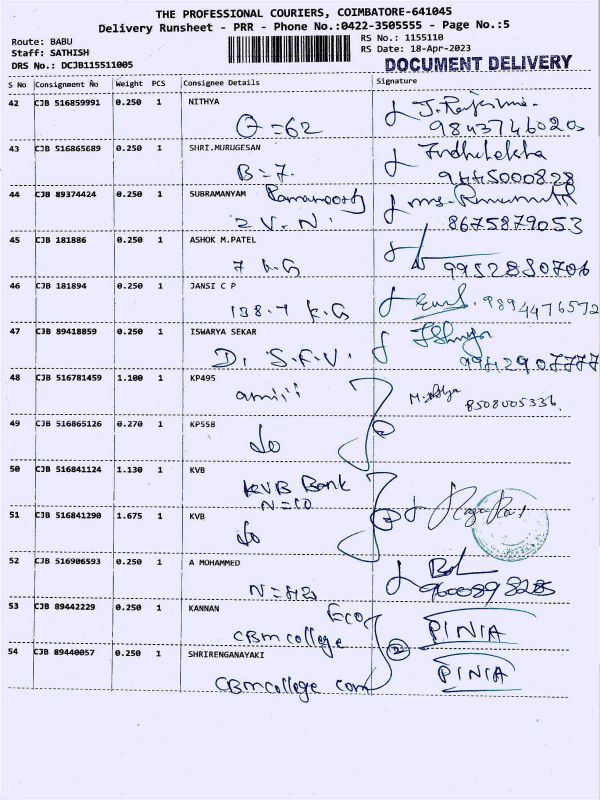 THE PROFESSIONAL COURIERS, COIMBATORE-641045
Delivery Runsheet - PRR - Phone No.:0422-3505555 - Page No.:5
Route: BABU
Staff: SATHISH
DRS No.: DCJB115511005
RS No.: 1155110
RS Date: 18-Apr-2023
DOCUMENT DELIVERY
S No Consignment No Weight PCS Consignee Details Signature
42 CJB 516859991 0.250 1 NITHYA
O=62
43 CJB 516865689 0.250 1 SHRI.MURUGESAN
B=7.
9445000828
44 CJB 89374424 0.250 1 SUBRAMANYAM
2 V.N.
8675879053
45 CJB 181886 0.250 1 ASHOK M.PATEL
7 K.G
9952830706
46 CJB 181894 0.250 1 JANSI C P
K.G 9894476572
47 CJB 89418859 0.250 1 ISWARYA SEKAR
D. S.F.V.
48 CJB 516781459 1.100 1 KP495
8508005336.
49 CJB 516865126 0.270 1 KP558
do
50 CJB 516841124 1.130 1 KVB
KVB Bank
N=10
51 CJB 516841290 1.675 1 KVB
do
52 CJB 516906593 0.250 1 A MOHAMMED
53 CJB 89442229 0.250 1 KANNAN
Eco
CBM college
PINIA
54 CJB 89440057 0.250 1 SHRIRENGANAYAKI
2
CBM college com
PINIA